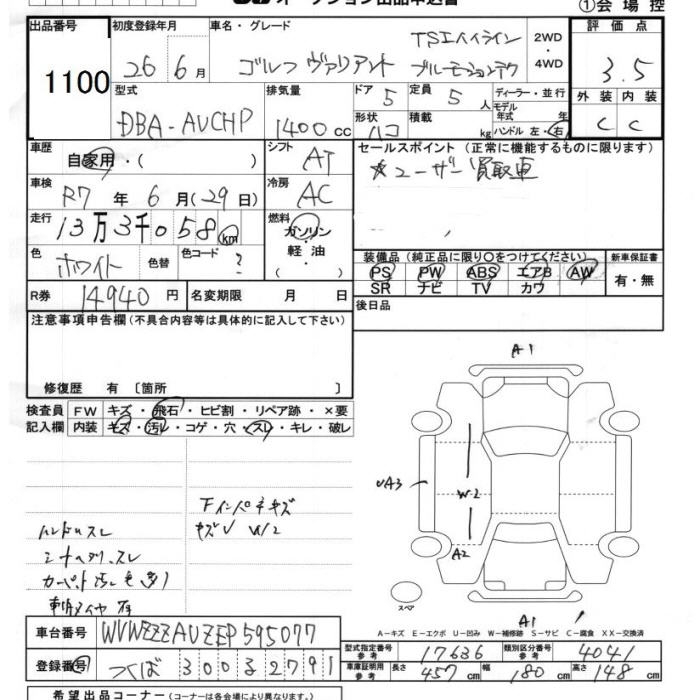 オークション出品申込書
①会場控
出品番号 初度登録年月 車名・グレード 評価点
1100 26 6月 ゴルフ ヴァリアント TSIハイライン ブルーモーションテク 2WD・4WD 3.5
型式 排気量 ドア 5 定員 5人 ディーラー・並行 外装 内装
DBA-AUCHP 1400cc 形状 ハコ 積載 kg モデル年式 年 ハンドル 左・右 C C
車歴 自家用・( ) シフト AT セールスポイント(正常に機能するものに限ります)
★ユーザー買取車
車検 R7年6月(29日) 冷房 AC
走行 13万3千058km 燃料 ガソリン・軽油・( )
色 ホワイト 色替 色コード ?
装備品(純正品に限り○をつけてください) 新車保証書
PS PW ABS エアB AW 有・無
SR ナビ TV カワ
R券 14940円 名変期限 月 日 後日品
注意事項申告欄(不具合内容等は具体的に記入して下さい)
修復歴 有〔箇所 〕
検査員 FW キズ・飛石・ヒビ割・リペア跡・×要
記入欄 内装 キズ・汚レ・コゲ・穴・スレ・キレ・破レ
A1
UA3
W2
A2
スペア
A1
Fインパネキズ
キズU W2
ハンドルスレ
シートヘタリ、スレ
A-キズ E-エクボ U-凹み W-補修跡 S-サビ C-腐食 XX-交換済
車台番号 WVWZZZAUZEP595077
型式指定番号 参考 17636 類別区分番号 参考 4041
登録番号 つくば 300 る 2791
車庫証明用 参考 長さ 457cm 幅 180cm 高さ 148cm
希望出品コーナー(コーナーは各会場により異なります。)